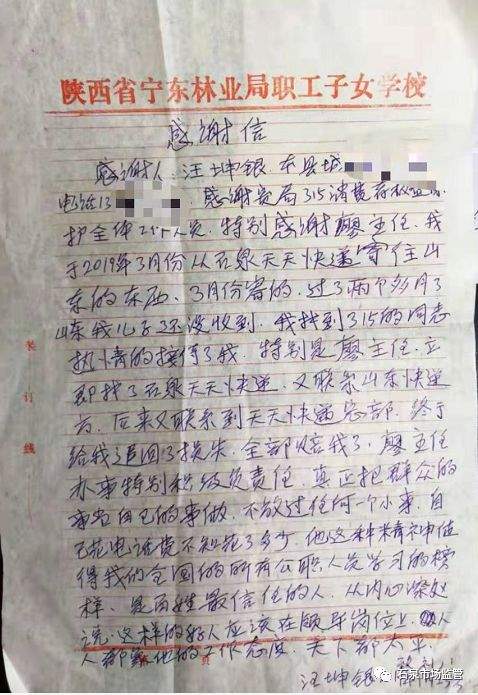 陕西省宁东林业局职工子女学校
感谢信
感谢人 汪坤银 本县城
电话13 感谢贵局315消费者权益
护全体工作人员 特别感谢廖主任。我
于2019年3月份从石泉天天快递寄往山
东的东西、3月份寄的,过了两个多月了
山东我儿子还没收到,我找到了315的同志
热情的接待了我,特别是廖主任,立
即找了石泉天天快递,又联系山东快递
方,后来又联系到天天快递总部,终于
给我追回了损失,全部赔我了,廖主任
办事特别积极负责任,真正把群众的
事当自己的事做,不放过任何一个小事,自
己花电话费不知花了多少,他这种精神值
得我们全国的所有公职人员学习的榜
样、是百姓最信任的人,从内心深处
说,这样的好人应该在领导岗位上,人
人都 他的工作态度、天下都太平
汪坤银 敬
装
订
线
石泉市场监管